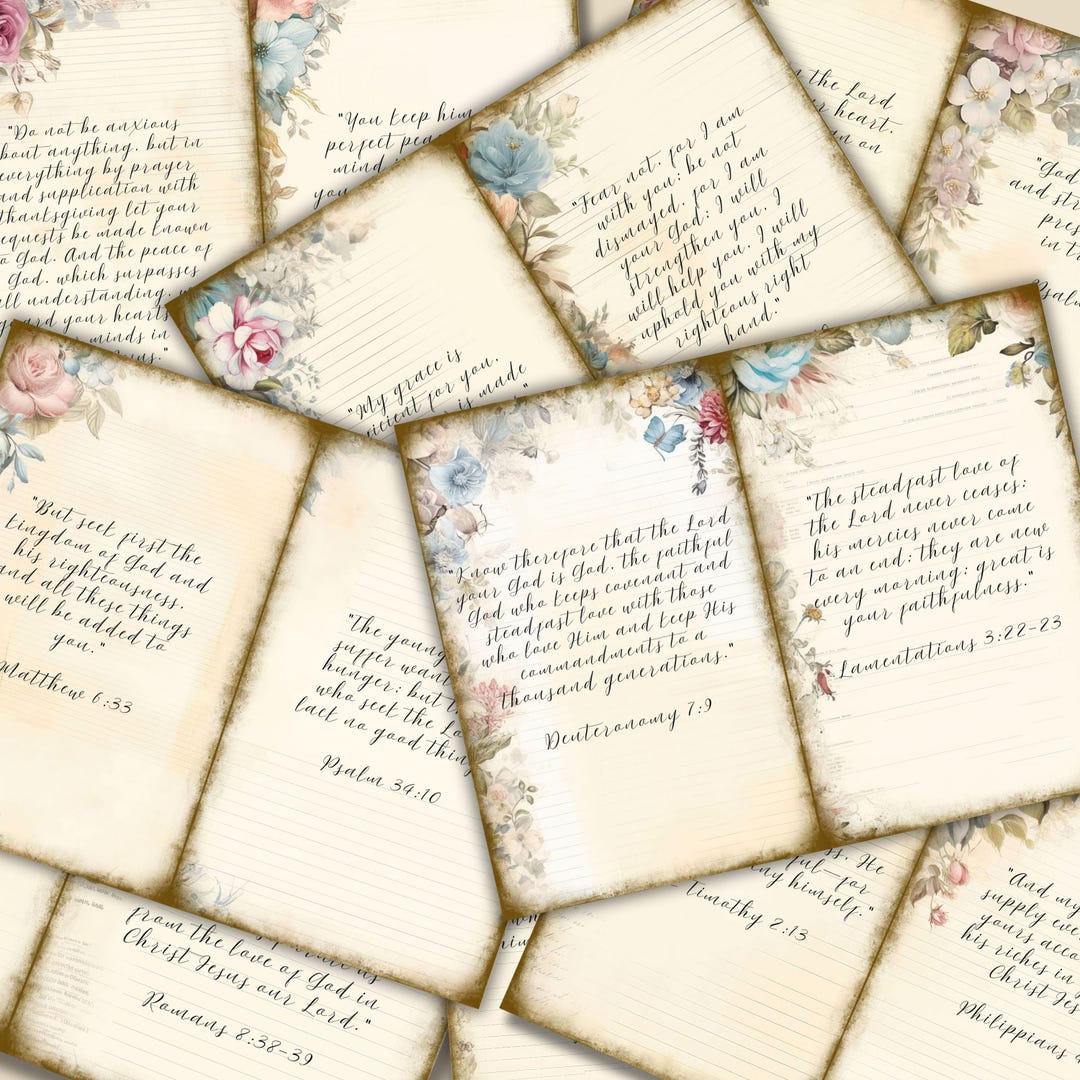 "Do not be anxious
about anything, but in
everything by prayer
and supplication with
thanksgiving let your
requests be made known
to God. And the peace of
God, which surpasses
all understanding,
guard your hearts
minds in
"You keep him
perfect peace
mind is
you
"Fear not, for I am
with you; be not
dismayed, for I am
your God; I will
strengthen you, I
will help you, I will
uphold you with my
righteous right
hand."
the Lord
heart,
on
"God
and str
pres
in
Psalm
"My grace is
ficient for you,
is made
"But seek first the
kingdom of God and
his righteousness,
and all these things
will be added to
you."
Matthew 6:33
"The young
suffer want
hunger; but t
who seek the Lo
lack no good thin
Psalm 34:10
"Know therefore that the Lord
your God is God, the faithful
God who keeps covenant and
steadfast love with those
who love Him and keep His
commandments to a
thousand generations."
Deuteronomy 7:9
"The steadfast love of
the Lord never ceases;
his mercies never come
to an end; they are new
every morning; great is
your faithfulness."
Lamentations 3:22-23
from the love of God in
Christ Jesus our Lord."
Romans 8:38-39
s, He
ful—for
ny himself."
Timothy 2:13
"And my
supply eve
yours acco
his riches in
Christ Jes
Philippians